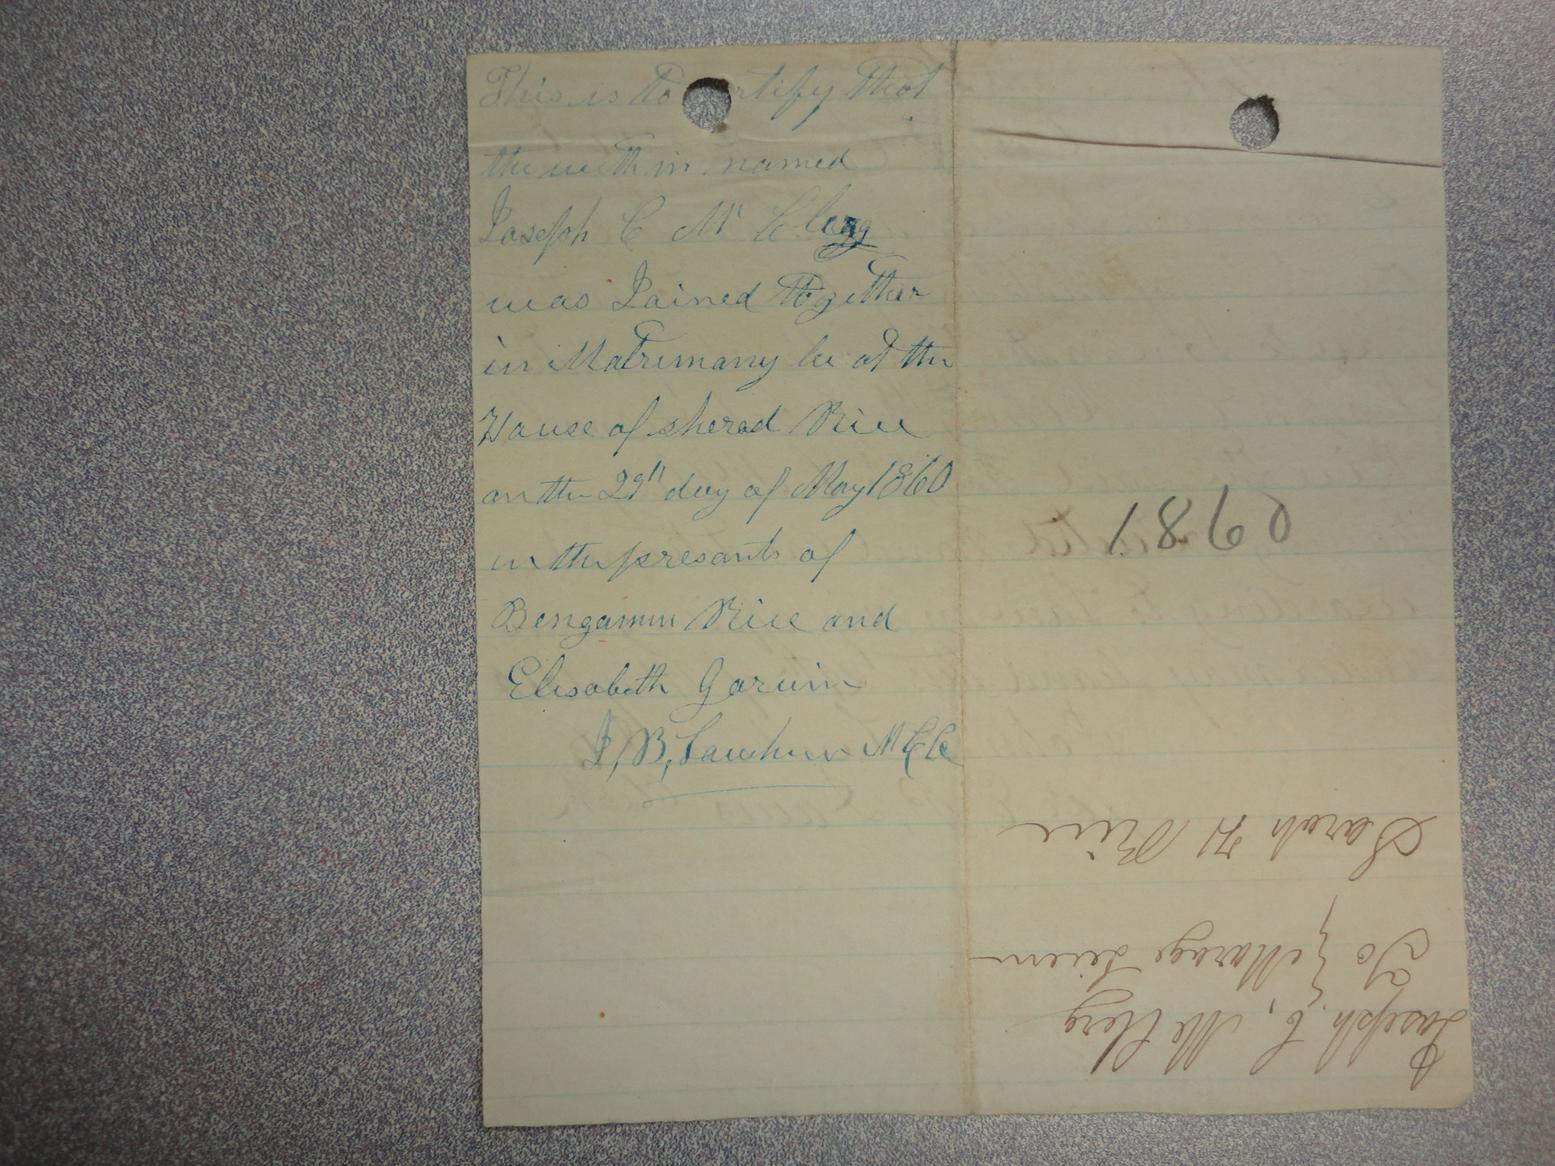 This is to certify that
the with in named
Joseph C Mc Clerg
was Joined together
in Matrimany be at the
House of sherad Rice
on the 29th day of May 1860
in the presants of
Bengamin Rice and
Elisabeth Garvin
J, B,
1860
Joseph C, Mc Clerg
To } Marage
Sarah H Rice